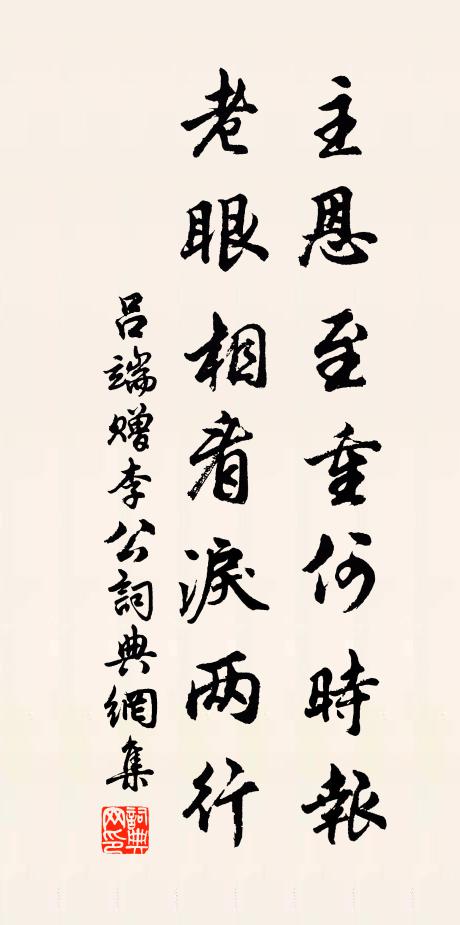 主恩至重何時報
老眼相看淚两行
吕端赠李公詞典網集
詞典網印